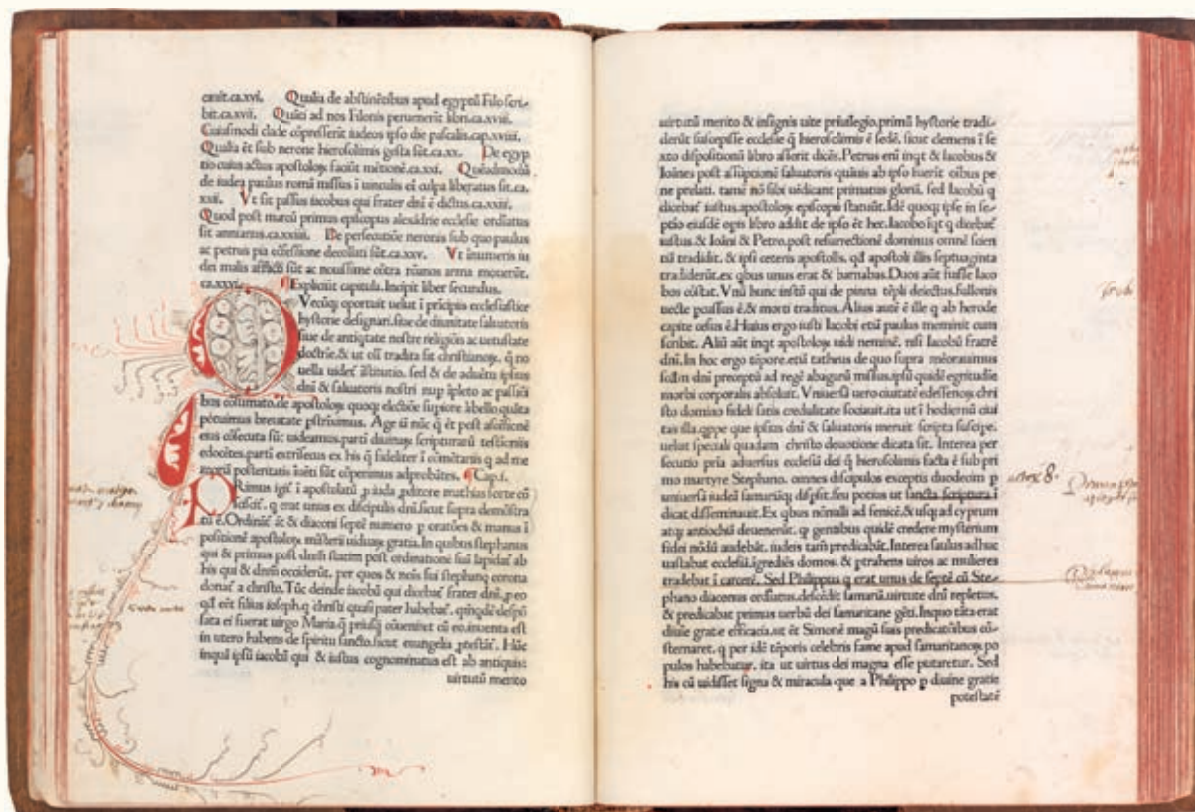 cauit.ca.xvi. Qualia de abstinētibus apud egyptū Filo scri-
bit.ca.xvii. Quāti ad nos Filonis peruenerīt libri.ca.xviii.
Cuiusmodi clade cōpresserit iudeos ipso die pascalis.cap.xviiii.
Qualia ēt sub nerone hierosolimis gesta sūt.ca.xx. De egyp
tio cuius actus apostoloꝝ faciūt mētionē.ca.xxi. Quēadmodū
de iudea paulus romā missus ī uinculis ei culpa liberatus sit.ca.
xxii. Vt sit passus iacobus qui frater dn̄i ē dictus.ca.xxiii.
Quod post marcū primus episcopus alexādrie ecclesie ordiatus
sit annianus.ca.xxiiii. De persecutiōe neronis sub quo paulus
ac petrus pia cōfessione decollati sūt.ca.xxv. Vt inumeris iu
dei malis afflicti sūt ac nouissime cōtra rōanos arma mouerūt.
ca.xxvi. Expliciūt capitula. Incipit liber secundus.
Vecūqꝫ oportuit uelut ī pricipiis ecclesiastice
hystorie designari. siue de diuinitate saluatoris
siue de antiqtate nostre religiōis ac uetustate
doctrie.& ut oli tradita sit christianoꝝ. q̄ no
uella uidet istitutio. sed & de aduētu ipsius
dn̄i & saluatoris nostri nup īpleto ac passiōi
bus cōsumato.de apostoloꝝ quoqꝫ electiōe supiore libello quāta
potuimus breuitate pstriximus. Age iā nūc q̄ ēt post ascēsionē
eius cōsecuta sūt uideamus.parti diuinaꝝ scripturarū testioniis
edocti.parti extrisecus ex his q̄ fideliter ī cōmētariis q ad me
moriā posteritatis iuēti sūt cōperimus adprobātes. Cap.i.
Rimus igit ī apostolatū p iuda pditore mathias sorte cō
stituit. q erat unus ex discipulis dn̄i.sicut supra demōstra
tū ē.Ordināt ēt & diaconi septē numero p oratiōes & manus ī
positionē apostoloꝝ misterii uiduaꝝ gratia. In quibus stephanus
qui & primus post dn̄m statim post ordinationē suā lapidat ab
his qui & dn̄m occiderūt. per quos & nois sui stephanꝯ corona
donat a christo. Tūc deinde iacobū qui dicebat frater dn̄i. p eo
qd eēt filius ioseph.q christi quasi pater habebat. qm̄qdē despō
sata ei fuerat uirgo Maria.q̄ priusqꝫ cōuenirēt cū eo.inuenta est
in utero habens de spiritu sancto.sicut euangelia ptestāt. Hūc
inquā ipsū iacobū qui & iustus cognominatus est ab antiquis:
uirtutū merito
uirtutū merito & insignis uite priuilegio.primū hystorie tradi-
derūt suscepisse ecclesie q̄ hierosolimis ē sedē, sicut clemens ī se
xto dispositionū libro asserit dicēs. Petrus eni īqt & Iacobus &
Ioānes post assūptionē saluatoris quāuis ab ipso fuerīt oībus pe
ne prelati. tamē nō sibi uidicant primatus gloriā. sed Iacobū q
dicebat iustus.apostoloꝝ episcopū statuūt. Idē quoqꝫ ipse in se-
ptio eiusdē opis libro addit de ipso ēt hec. Iacobo īqt q dicebat
iustus & Ioāni & Petro.post resurrectionē dominus omnē scien
tiā tradidit. & ipsi ceteris apostolis. qd apostoli illis septuaginta
tradiderūt.ex qbus unus erat & barnabas. Duos aūt fuisse Iaco
bos cōstat. Vnū hunc iustū qui de pinna tēpli deiectus.fullonis
uecte pcussus ē.& morti traditus. Alius autē ē ille q ab herode
capite cesus ē. Huius ergo iusti Iacobi etiā paulus meminit cum
scribit. Aliū aūt inqt apostoloꝝ uidi neminē, nisi Iacobū fratrē
dn̄i. In hoc ergo tēpore.etiā tatheus de quo supra mēorauimus
scdm̄ dn̄i preceptū ad regē abagarū missus.ipsū quidē egritudie
morbi corporalis absoluit. Vniuersā uero ciuitatē edessenoꝝ chri
sto domino fideli satis credulitate sociauit.ita ut ī hodiernū ciui
tas illa.qppe que ipsius dn̄i & saluatoris meruit scripta suscipe.
uelut speciali quadam christo deuotione dicata sit. Interea per
secutio pria aduersus ecclesiā dei q̄ hierosolimis facta ē sub pri
mo martyre Stephano. omnes discipulos exceptis duodecim p
uniuersā iudeā samariāqꝫ dispsit.seu potius ut sancta scriptura ī
dicat disseminauit. Ex qbus nōnulli ad fenicē.& usqꝫ ad cyprum
atqꝫ antiochiā deuenerūt. qꝫ gentibus quidē credere mysterium
fidei nōdū audebāt. iudeis tam̄ predicabāt. Interea saulus adhuc
uastabat ecclesiā.igrediēs domos. & ptrahens uiros ac mulieres
tradebat ī carcerē. Sed Philippus q erat unus de septē cū Ste-
phano diaconus ordiatus.descēdit samariā.uirtute dn̄i repletus.
& predicabat primus uerbū dei samaritane gēti. Inquo tāta erat
diuie gratie efficacia.ut ēt Simonē magū suis predicatiōibus cō-
sternaret. q per idē tēporis celebris fame apud samaritanoꝝ po
pulos habebatur. ita ut uirtus dei magna esse putaretur. Sed
his cū uidisset signa & miracula que a Philippo p diuine gratie
potestatē